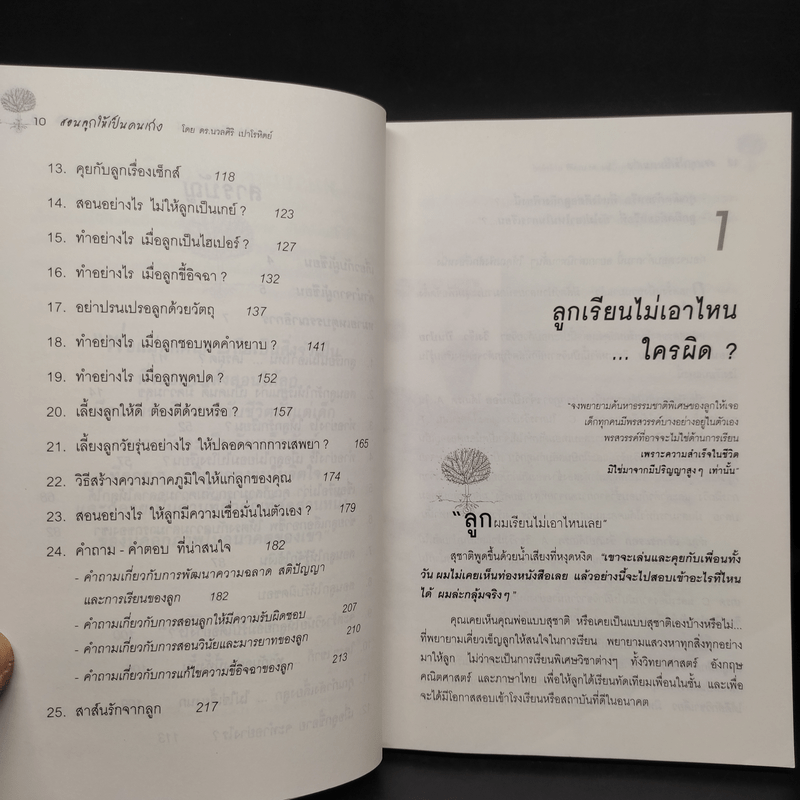 10 สอนลูกให้เป็นคนเก่ง โดย ดร.นวลศิริ เปาโรหิตย์
13. คุยกับลูกเรื่องเซ็กส์ 118
14. สอนอย่างไร ไม่ให้ลูกเป็นเกย์ ? 123
15. ทำอย่างไร เมื่อลูกเป็นไฮเปอร์ ? 127
16. ทำอย่างไร เมื่อลูกขี้อิจฉา ? 132
17. อย่าปรนเปรอลูกด้วยวัตถุ 137
18. ทำอย่างไร เมื่อลูกชอบพูดคำหยาบ ? 141
19. ทำอย่างไร เมื่อลูกพูดปด ? 152
20. เลี้ยงลูกให้ดี ต้องตีด้วยหรือ ? 157
21. เลี้ยงลูกวัยรุ่นอย่างไร ให้ปลอดจากการเสพยา ? 165
22. วิธีสร้างความภาคภูมิใจให้แก่ลูกของคุณ 174
23. สอนอย่างไร ให้ลูกมีความเชื่อมั่นในตัวเอง ? 179
24. คำถาม - คำตอบ ที่น่าสนใจ 182
- คำถามเกี่ยวกับการพัฒนาความฉลาด สติปัญญา
และการเรียนของลูก 182
- คำถามเกี่ยวกับการสอนลูกให้มีความรับผิดชอบ 207
- คำถามเกี่ยวกับการสอนวินัยและมารยาทของลูก 210
- คำถามเกี่ยวกับการแก้ไขความขี้อิจฉาของลูก 213
25. สาส์นรักจากลูก 217
1
ลูกเรียนไม่เอาไหน
... ใครผิด ?
"จงพยายามค้นหาธรรมชาติพิเศษของลูกให้เจอ
เด็กทุกคนมีพรสวรรค์บางอย่างอยู่ในตัวเอง
พรสวรรค์ที่อาจจะไม่ใช่ด้านการเรียน
เพราะความสำเร็จในชีวิต
มิใช่มาจากมีปริญญาสูงๆ เท่านั้น"
"ลูกผมเรียนไม่เอาไหนเลย"
สุชาติพูดขึ้นด้วยน้ำเสียงที่หงุดหงิด "เขาจะเล่นและคุยกับเพื่อนทั้ง
วัน ผมไม่เคยเห็นท่องหนังสือเลย แล้วอย่างนี้จะไปสอบเข้าอะไรที่ไหน
ได้ ผมล่ะกลุ้มจริงๆ"
คุณเคยเห็นคุณพ่อแบบสุชาติ หรือเคยเป็นแบบสุชาติเองบ้างหรือไม่...
ที่พยายามเคี่ยวเข็ญลูกให้สนใจในการเรียน พยายามแสวงหาทุกสิ่งทุกอย่าง
มาให้ลูก ไม่ว่าจะเป็นการเรียนพิเศษวิชาต่างๆ ทั้งวิทยาศาสตร์ อังกฤษ
คณิตศาสตร์ และภาษาไทย เพื่อให้ลูกได้เรียนทัดเทียมเพื่อนในชั้น และเพื่อ
จะได้มีโอกาสสอบเข้าโรงเรียนหรือสถาบันที่ดีในอนาคต